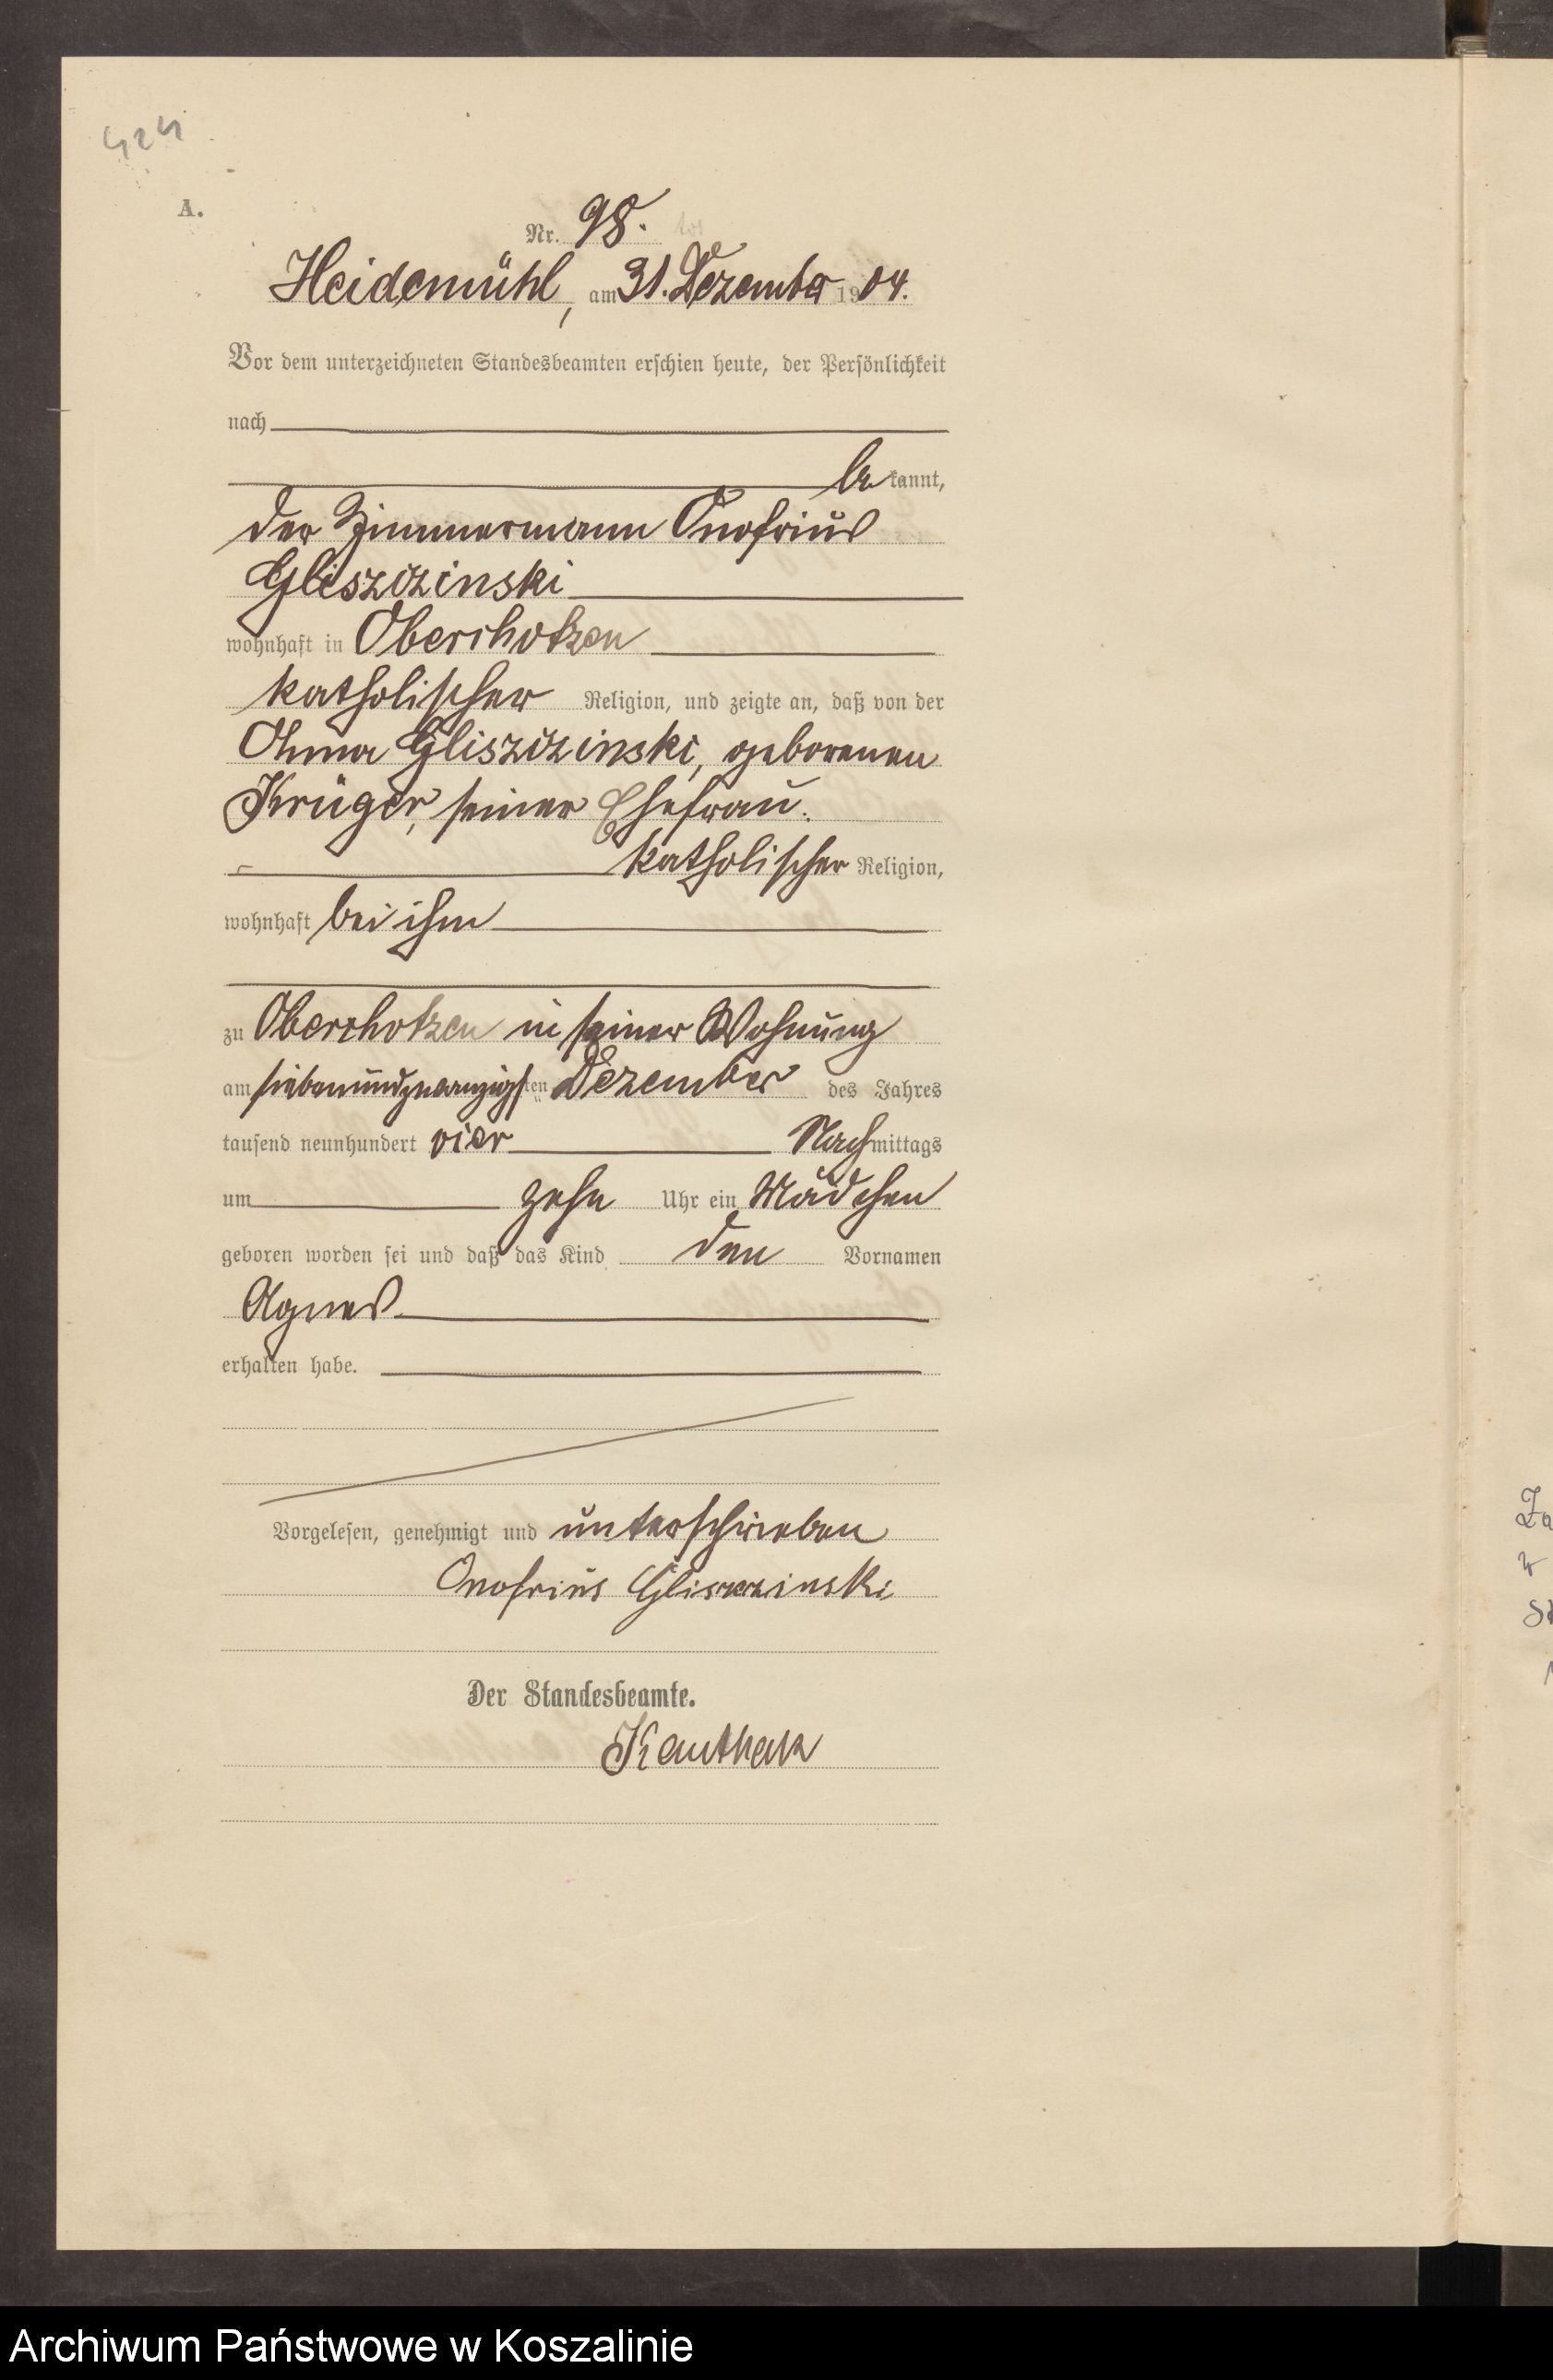 424
A.
Nr. 98.
Heidemühl, am 31. Dezember 1904.
Vor dem unterzeichneten Standesbeamten erschien heute, der Persönlichkeit
nach
be kannt,
der Zimmermann Onofrius
Gliszczinski
wohnhaft in Oberchotzen
katholischer Religion, und zeigte an, daß von der
Anna Gliszczinski, geborenen
Krüger, seiner Ehefrau.
katholischer Religion,
wohnhaft bei ihm
zu Oberchotzen in seiner Wohnung
am siebenundzwanzigsten Dezember des Jahres
tausend neunhundert vier Nachmittags
um zehn Uhr ein Mädchen
geboren worden sei und daß das Kind den Vornamen
Agnes
erhalten habe.
Vorgelesen, genehmigt und unterschrieben
Onofrius Gliszczinski
Der Standesbeamte.
Kauthak
Za
w
Archiwum Państwowe w Koszalinie